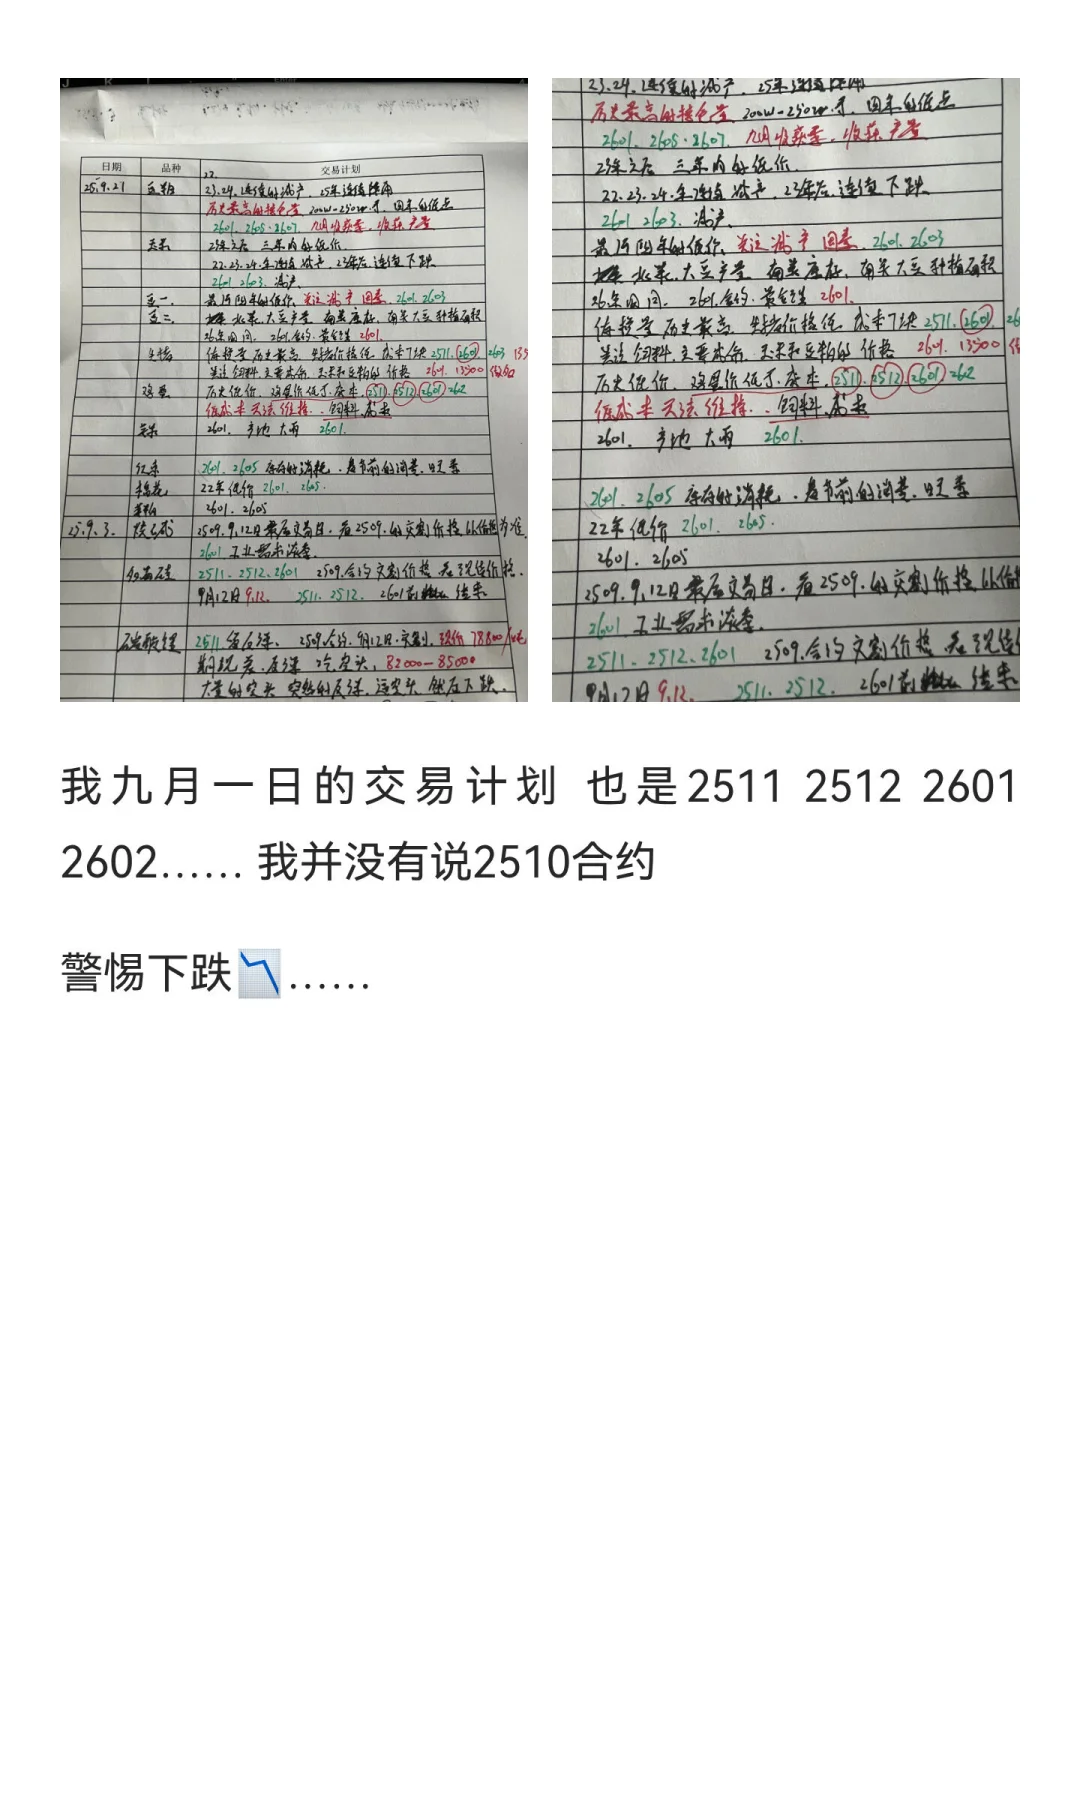 日期 品种 交易计划
22.
25.9.21 豆粕 23.24.连续的减产.25年连续降雨
历史最高的持仓量 200W-250W手.四年的低点
2601.2605.2607. 九月收获季.收获产量
玉米 23年之后 三年内的低价.
22.23.24.年连续减产.23年后.连续下跌.
2601 2603.减产.
豆一. 最近四年的低价.关注减产因素.2601.2603
豆二. 北美.大豆产量 南美库存.南美大豆种植面积
26年时间. 2601.合约.最合适 2601.
生猪 历史最高. 价格低.成本7块 2511.2601 2603
关注饲料.主要成本.玉米和豆粕的价格 2601.13500
鸡蛋 历史低价.鸡蛋价低于.成本.2511.2512.2601 262
低成本无法维持..饲料.
2601. 产地 大雨 2601.
红枣 2601.2605 库存的消耗.春节前的消费.旺季
棉花 22年低价 2601.2605.
2601.2605
25.9.3. 2509.9.12日最后交易日.看2509.的交割价格以价格为准.
2601 工业需求淡季.
2511.2512.2601 2509.合约交割价格 现货价格.
9月12日9.12. 2511.2512. 2601前 结束.
碳酸锂 2511 2509.合约.9月12日.交割.现价78800/吨
期现差.反弹 空头.82000-85000
大量的空头 突然的反弹. 然后下跌.
23.24.连续的减产.25年连续降雨
历史最高的持仓量 200W-250W手.四年的低点
2601.2605.2607. 九月收获季.收获产量
23年之后 三年内的低价.
22.23.24.年连续减产.23年后.连续下跌
2601 2603.减产.
最近四年的低价.关注减产因素.2601.2603
北美.大豆产量 南美库存.南美大豆种植面积
26年时间. 2601.合约.最合适 2601.
历史最高. 价格低.成本7块 2511.2601
关注饲料.主要成本.玉米和豆粕的价格 2601.13500
历史低价.鸡蛋价低于.成本.2511.2512.2601 262
低成本无法维持..饲料.
2601. 产地 大雨 2601.
2601.2605 库存的消耗.春节前的消费.旺季
22年低价 2601.2605.
2601.2605
2509.9.12日最后交易日.看2509.的交割价格以价格
2601 工业需求淡季.
2511.2512.2601 2509.合约交割价格
9月12日9.12. 2511.2512. 2601前 结束.
我九月一日的交易计划 也是2511 2512 2601
2602…… 我并没有说2510合约
警惕下跌📉……